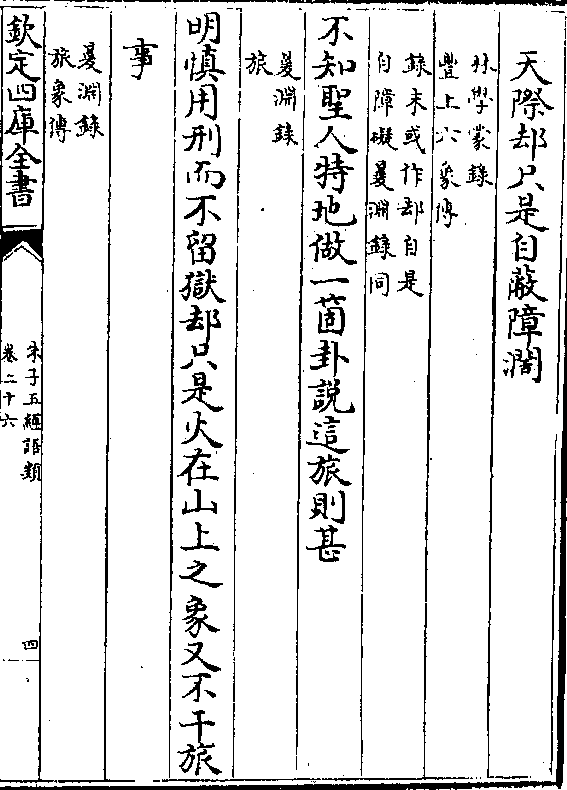 天際却只是自蔽障濶
林學蒙錄
豐上六象傳
錄末或作却自是
自障礙㬊淵錄同
不知聖人特地做一箇卦說這旅則甚
㬊淵錄
旅
明慎用刑而不留獄却只是火在山上之象又不干旅
事
㬊淵錄
旅象傳
欽定四庫全書
朱子五經語類
卷二十六
四